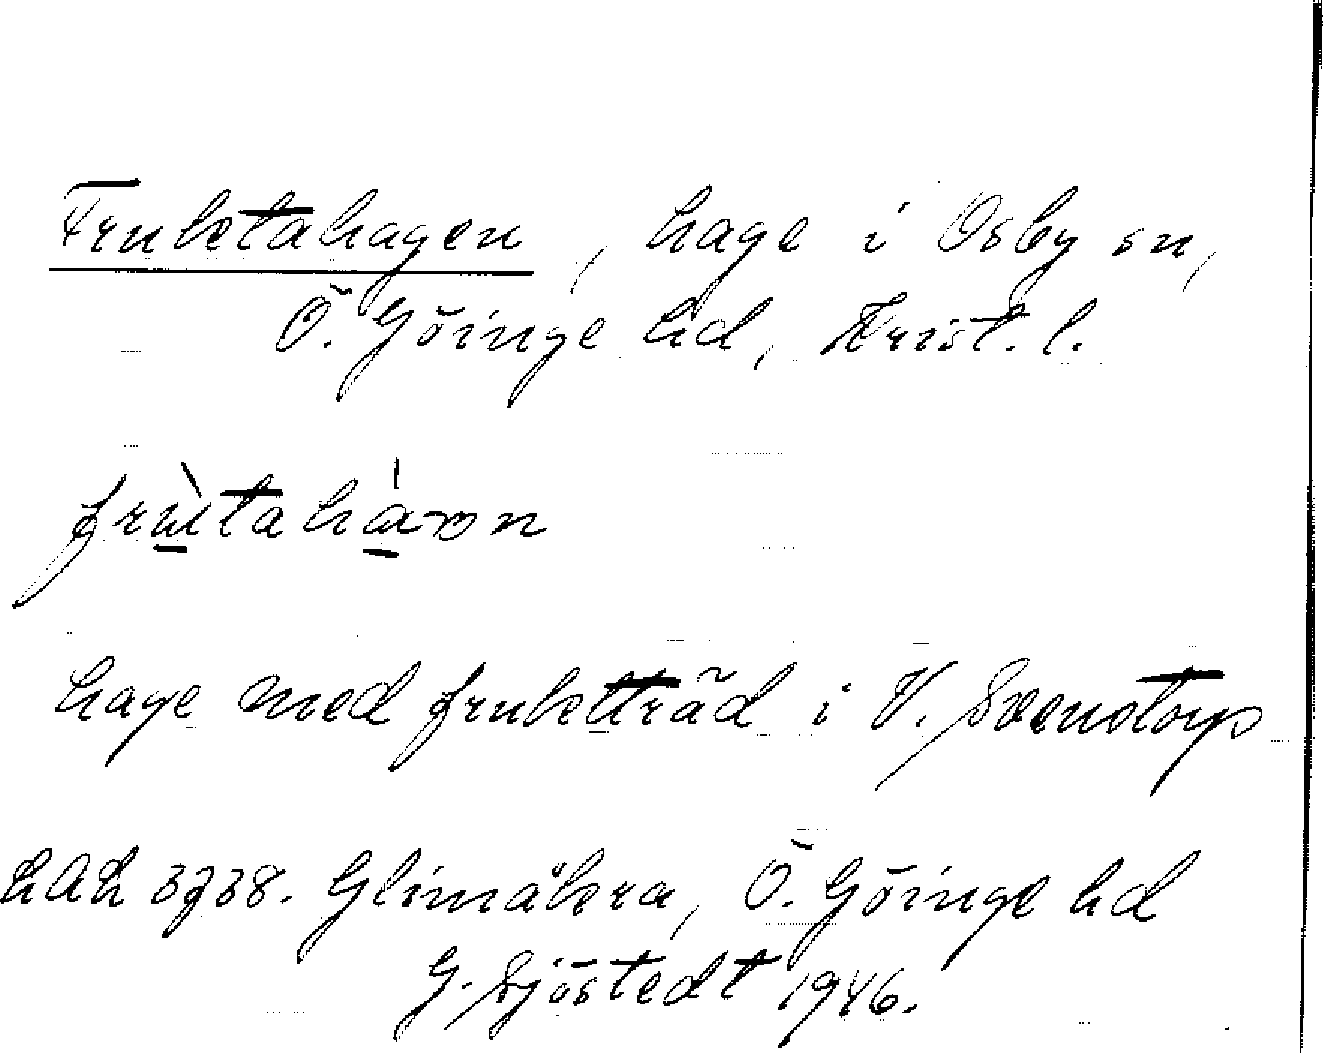 Fruktahagen, hage i Osby sn,
Ö. Göinge hd, Krist. l.
hage med fruktträd i V. Svenstorp
LAL 3738. Glimåkra, Ö. Göinge hd
G. Sjöstedt 1946.